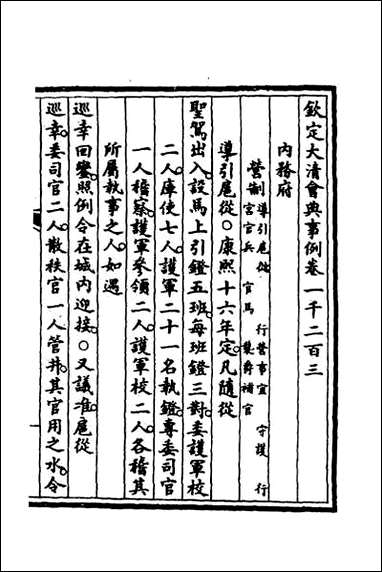 欽定大清會典事例卷一千二百三
內務府
營制 導引扈從 行營事宜 守護 行
宮官兵 官馬 襲爵補官
導引扈從○康熙十六年定凡隨從
聖駕出入設馬上引鐙五班每班鐙三對委護軍校
二人庫使七人護軍二十一名執鐙專委司官
一人稽察護軍參領二人護軍校二人各稽其
所屬執事之人如遇
巡幸回鑾照例令在城內迎接○又議准扈從
巡幸委司官二人散秩官一人管井其官用之水令